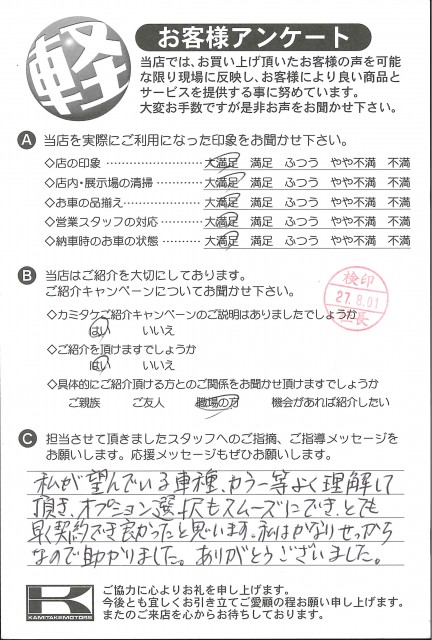 軽
お客様アンケート
当店では、お買い上げ頂いたお客様の声を可能
な限り現場に反映し、お客様により良い商品と
サービスを提供する事に努めています。
大変お手数ですが是非お声をお聞かせ下さい。
A 当店を実際にご利用になった印象をお聞かせ下さい。
◇店の印象 ……………………… 大満足 満足 ふつう やや不満 不満
◇店内・展示場の清掃 ………… 大満足 満足 ふつう やや不満 不満
◇お車の品揃え ………………… 大満足 満足 ふつう やや不満 不満
◇営業スタッフの対応 ………… 大満足 満足 ふつう やや不満 不満
◇納車時のお車の状態 ………… 大満足 満足 ふつう やや不満 不満
B 当店はご紹介を大切にしております。
ご紹介キャンペーンについてお聞かせ下さい。
◇カミタケご紹介キャンペーンのご説明はありましたでしょうか
はい いいえ
◇ご紹介を頂けますでしょうか
はい いいえ
◇具体的にご紹介頂ける方とのご関係をお聞かせ頂けますでしょうか
ご親族 ご友人 職場の方 機会があれば紹介したい
検印
27.8.01
店長
C 担当させて頂きましたスタッフへのご指摘、ご指導メッセージを
お願いします。応援メッセージもぜひお願いします。
私が望んでいる車種、カラー等よく理解して
頂き、オプション選択もスムーズにでき、とても
早く契約でき良かったと思います。私はかなりせっかち
なので助かりました。ありがとうございました。
K
KAMITAKEMOTORS
ご協力に心よりお礼を申し上げます。
今後とも宜しくお引き立てご愛顧の程お願い申し上げます。
またのご来店を心からお待ちしております。